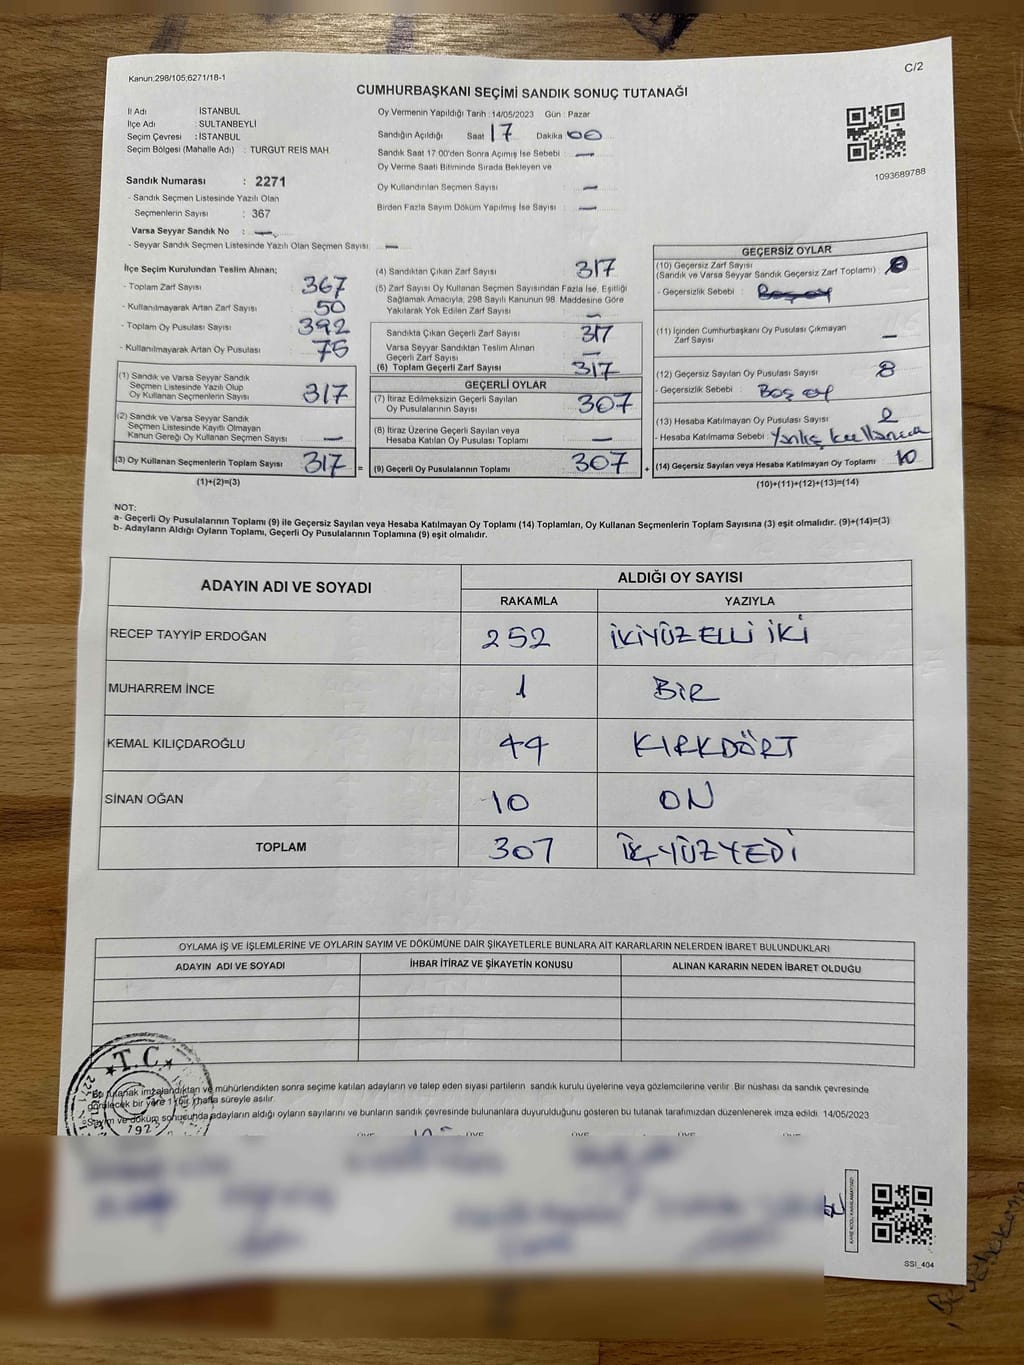 Kanun:298/105;6271/18-1
C/2
CUMHURBAŞKANI SEÇİMİ SANDIK SONUÇ TUTANAĞI
İl Adı : İSTANBUL
İlçe Adı : SULTANBEYLİ
Seçim Çevresi : İSTANBUL
Seçim Bölgesi (Mahalle Adı) : TURGUT REİS MAH.
Sandık Numarası : 2271
- Sandık Seçmen Listesinde Yazılı Olan
Seçmenlerin Sayısı : 367
Varsa Seyyar Sandık No : —
- Seyyar Sandık Seçmen Listesinde Yazılı Olan Seçmen Sayısı : —
Oy Vermenin Yapıldığı Tarih : 14/05/2023 Gün : Pazar
Sandığın Açıldığı Saat 17 Dakika 00
Sandık Saat 17:00'den Sonra Açılmış İse Sebebi : —
Oy Verme Saati Bitiminde Sırada Bekleyen ve
Oy Kullandırılan Seçmen Sayısı : —
Birden Fazla Sayım Döküm Yapılmış İse Sayısı : —
1093689788
İlçe Seçim Kurulundan Teslim Alınan;
- Toplam Zarf Sayısı : 367
- Kullanılmayarak Artan Zarf Sayısı : 50
- Toplam Oy Pusulası Sayısı : 392
- Kullanılmayarak Artan Oy Pusulası : 75
(1) Sandık ve Varsa Seyyar Sandık
Seçmen Listesinde Yazılı Olup
Oy Kullanan Seçmenlerin Sayısı : 317
(2) Sandık ve Varsa Seyyar Sandık
Seçmen Listesinde Kayıtlı Olmayan
Kanun Gereği Oy Kullanan Seçmen Sayısı : —
(3) Oy Kullanan Seçmenlerin Toplam Sayısı : 317
(1)+(2)=(3)
=
(4) Sandıktan Çıkan Zarf Sayısı : 317
(5) Zarf Sayısı Oy Kullanan Seçmen Sayısından Fazla İse, Eşitliği
Sağlamak Amacıyla, 298 Sayılı Kanunun 98. Maddesine Göre
Yakılarak Yok Edilen Zarf Sayısı : —
Sandıkta Çıkan Geçerli Zarf Sayısı : 317
Varsa Seyyar Sandıktan Teslim Alınan
Geçerli Zarf Sayısı : —
(6) Toplam Geçerli Zarf Sayısı : 317
GEÇERLİ OYLAR
(7) İtiraz Edilmeksizin Geçerli Sayılan
Oy Pusulalarının Sayısı : 307
(8) İtiraz Üzerine Geçerli Sayılan veya
Hesaba Katılan Oy Pusulası Toplamı : —
(9) Geçerli Oy Pusulalarının Toplamı : 307
+
GEÇERSİZ OYLAR
(10) Geçersiz Zarf Sayısı
(Sandık ve Varsa Seyyar Sandık Geçersiz Zarf Toplamı) : 0
- Geçersizlik Sebebi : Boş oy
(11) İçinden Cumhurbaşkanı Oy Pusulası Çıkmayan
Zarf Sayısı : —
(12) Geçersiz Sayılan Oy Pusulası Sayısı : 8
- Geçersizlik Sebebi : Boş oy
(13) Hesaba Katılmayan Oy Pusulası Sayısı : 2
- Hesaba Katılmama Sebebi : Yanlış kullanma
(14) Geçersiz Sayılan veya Hesaba Katılmayan Oy Toplamı : 10
(10)+(11)+(12)+(13)=(14)
NOT:
a- Geçerli Oy Pusulalarının Toplamı (9) ile Geçersiz Sayılan veya Hesaba Katılmayan Oy Toplamı (14) Toplamları, Oy Kullanan Seçmenlerin Toplam Sayısına (3) eşit olmalıdır. (9)+(14)=(3)
b- Adayların Aldığı Oyların Toplamı, Geçerli Oy Pusulalarının Toplamına (9) eşit olmalıdır.
ADAYIN ADI VE SOYADI
ALDIĞI OY SAYISI
RAKAMLA YAZIYLA
RECEP TAYYİP ERDOĞAN 252 İKİYÜZELLİ İKİ
MUHARREM İNCE 1 BİR
KEMAL KILIÇDAROĞLU 44 KIRKDÖRT
SİNAN OĞAN 10 ON
TOPLAM 307 ÜÇYÜZYEDİ
OYLAMA İŞ VE İŞLEMLERİNE VE OYLARIN SAYIM VE DÖKÜMÜNE DAİR ŞİKAYETLERLE BUNLARA AİT KARARLARIN NELERDEN İBARET BULUNDUKLARI
ADAYIN ADI VE SOYADI İHBAR İTİRAZ VE ŞİKAYETİN KONUSU ALINAN KARARIN NEDEN İBARET OLDUĞU
T.C.
1923
Bu tutanak imzalandıktan ve mühürlendikten sonra seçime katılan adayların ve talep eden siyasi partilerin sandık kurulu üyelerine veya gözlemcilerine verilir. Bir nüshası da sandık çevresinde
görülecek bir yere 1 (bir) hafta süreyle asılır.
Sayım ve döküm sonucunda adayların aldığı oyların sayılarını ve bunların sandık çevresinde bulunanlara duyurulduğunu gösteren bu tutanak tarafımızdan düzenlenerek imza edildi. 14/05/2023
KARE KODU KARALAMAYINIZ!
SSI_404